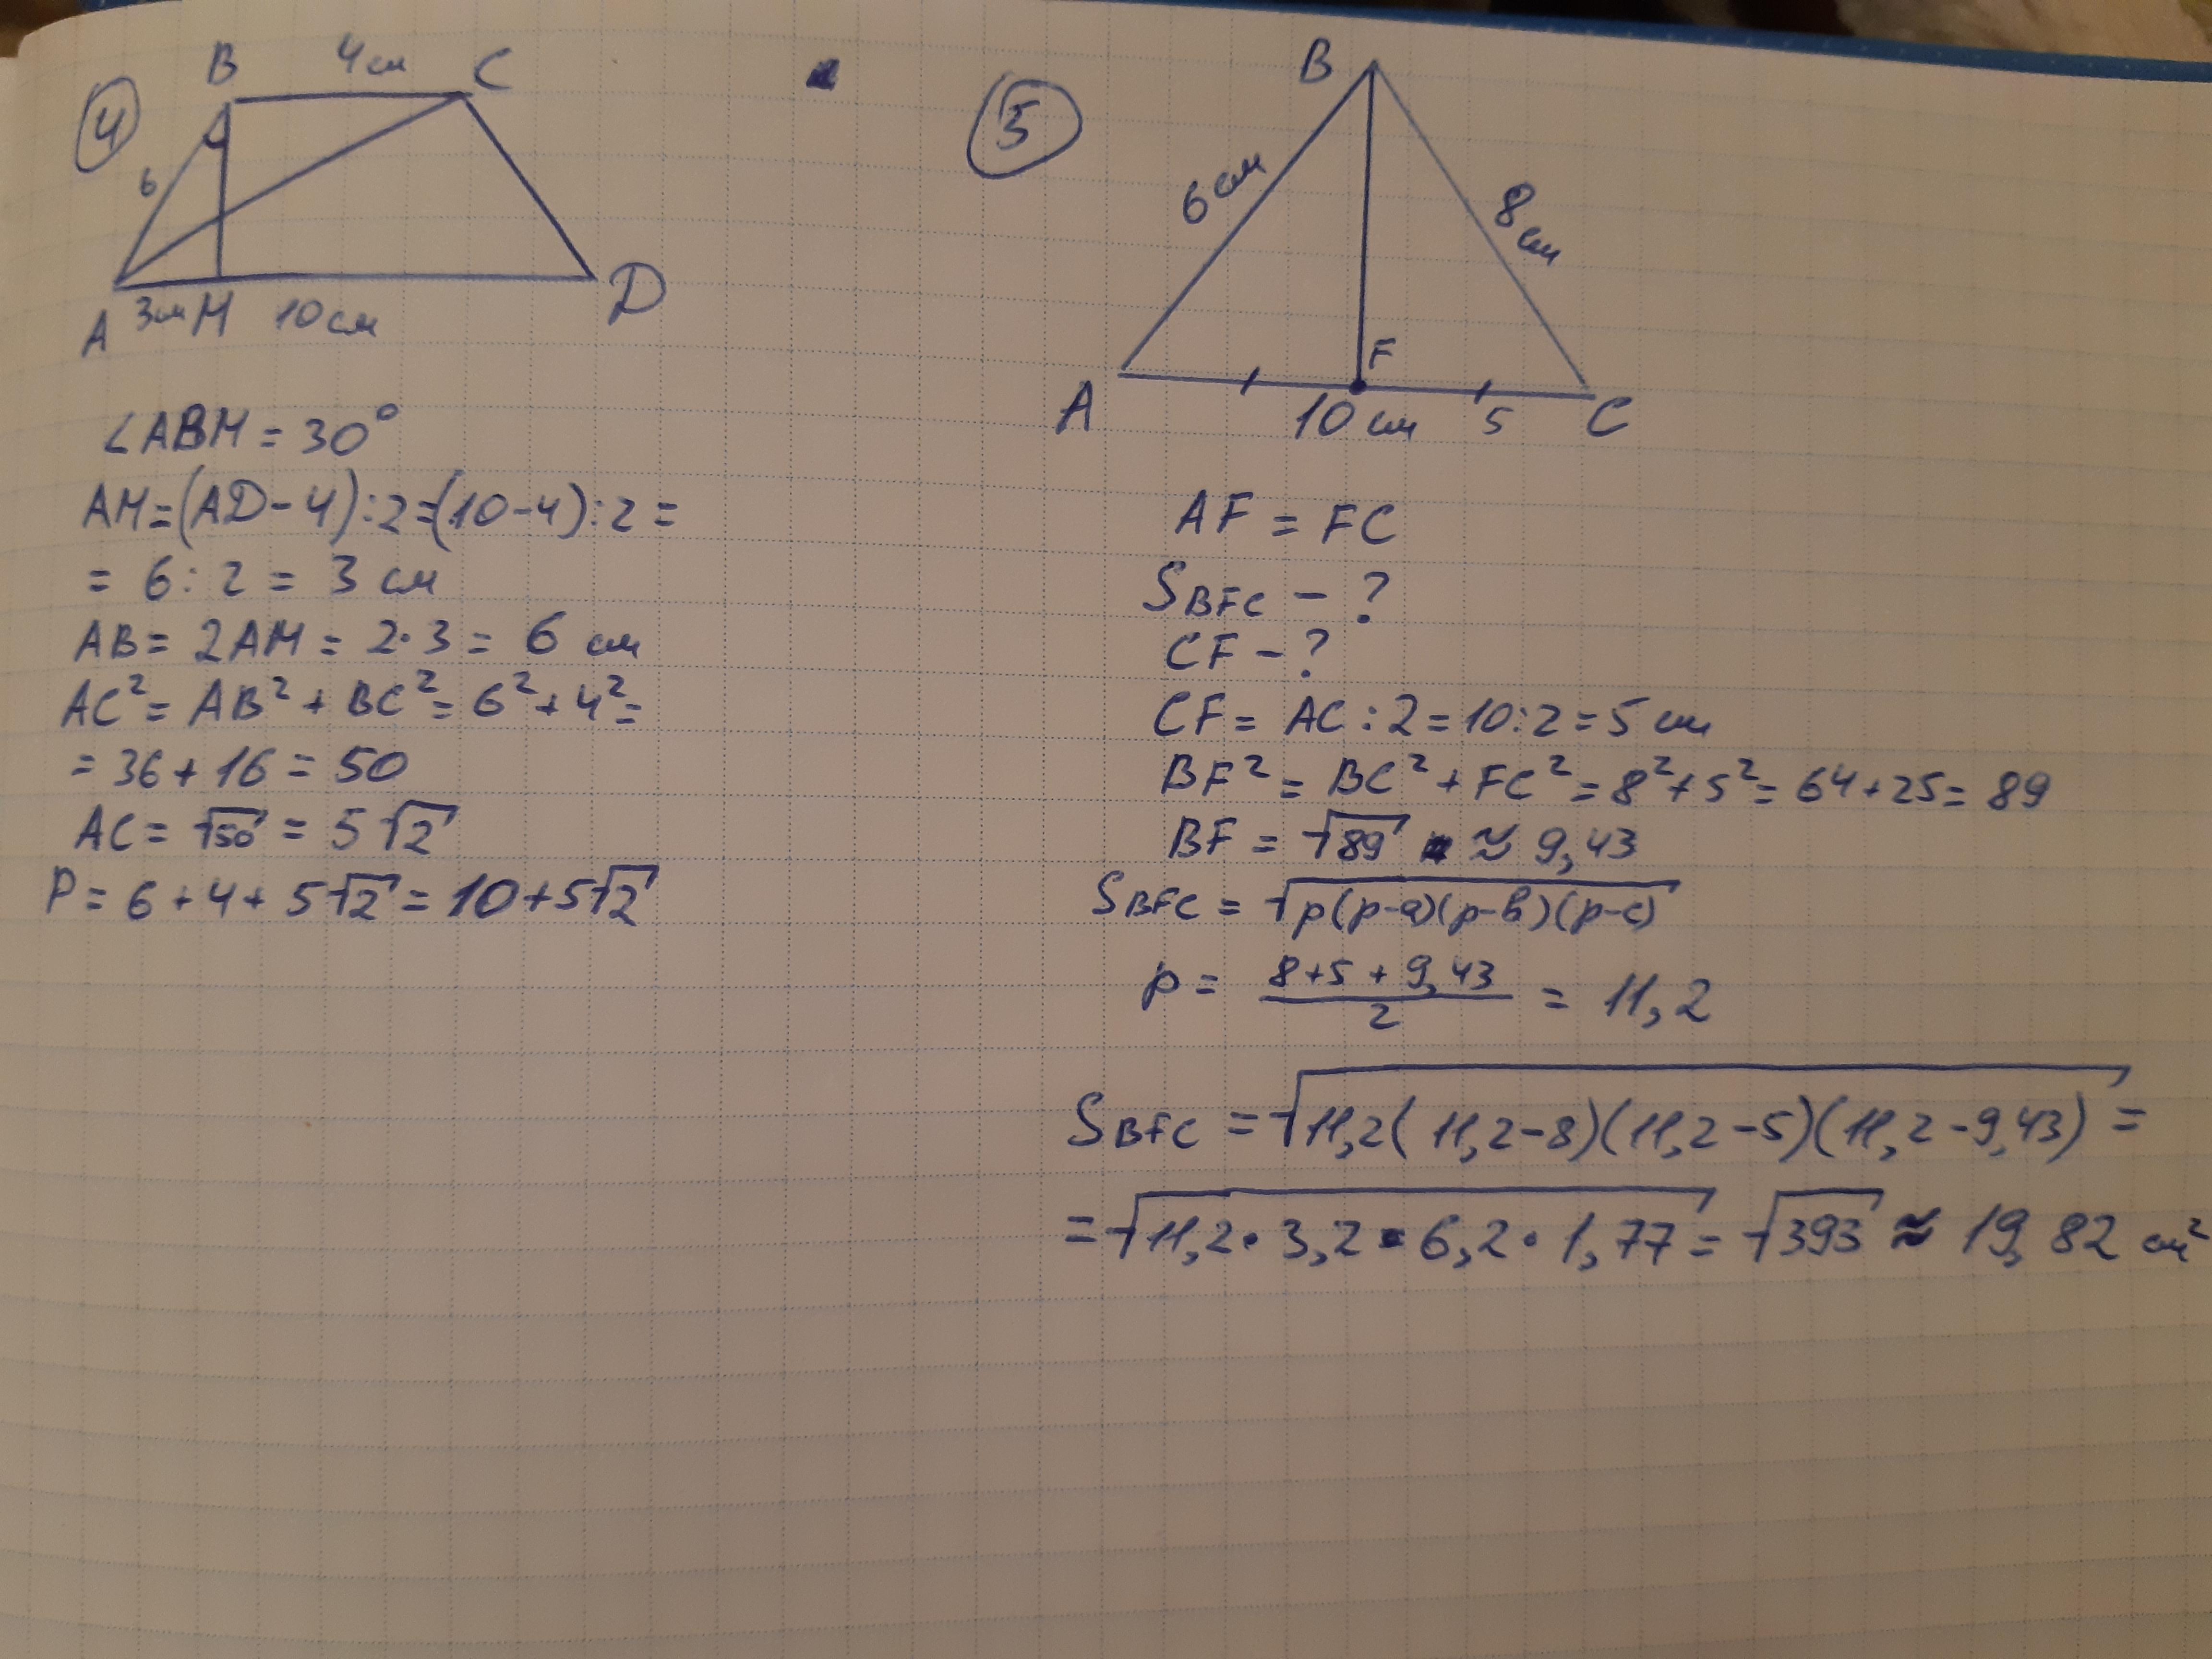 4
B 4 см C
6
A 3см M 10 см D
∠ABM = 30°
AM = (AD - 4) : 2 = (10 - 4) : 2 =
= 6 : 2 = 3 см
AB = 2AM = 2·3 = 6 см
AC² = AB² + BC² = 6² + 4² =
= 36 + 16 = 50
AC = √50 = 5√2
P = 6 + 4 + 5√2 = 10 + 5√2
5
B
6 см 8 см
F
A 10 см 5 C
AF = FC
S BFC - ?
CF - ?
CF = AC : 2 = 10 : 2 = 5 см
BF² = BC² + FC² = 8² + 5² = 64 + 25 = 89
BF = √89 ≈ 9,43
S BFC = √p(p-a)(p-b)(p-c)
p = (8 + 5 + 9,43)/2 = 11,2
S BFC = √11,2(11,2-8)(11,2-5)(11,2-9,43) =
= √11,2·3,2·6,2·1,77 = √393 ≈ 19,82 см²